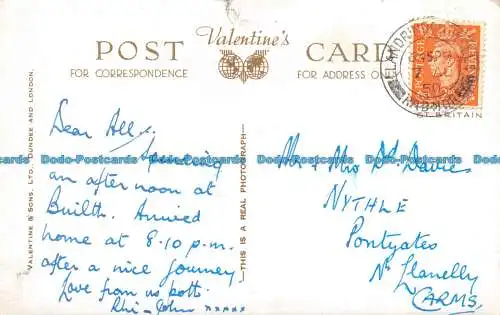 POST Valentine's CARD
FOR CORRESPONDENCE FOR ADDRESS ONLY
GT. BRITAIN
VALENTINE & SONS, LTD., DUNDEE AND LONDON.
THIS IS A REAL PHOTOGRAPH
Dear All,
Spending
an after noon at
Builth. Arrived
home at 8.10 p.m.
after a nice journey
Love from us both.
Rhi & John xxxxx
Mr & Mrs D. Davies
NYTHLE
Pontyates
Nr Llanelly
CARMS.
Dodo-Postcards Dodo-Postcards Dodo-Postcards Dodo-Postcards Dodo-Postcards
Dodo-Postcards Dodo-Postcards Dodo-Postcards Dodo-Postcards Dodo-Postcards